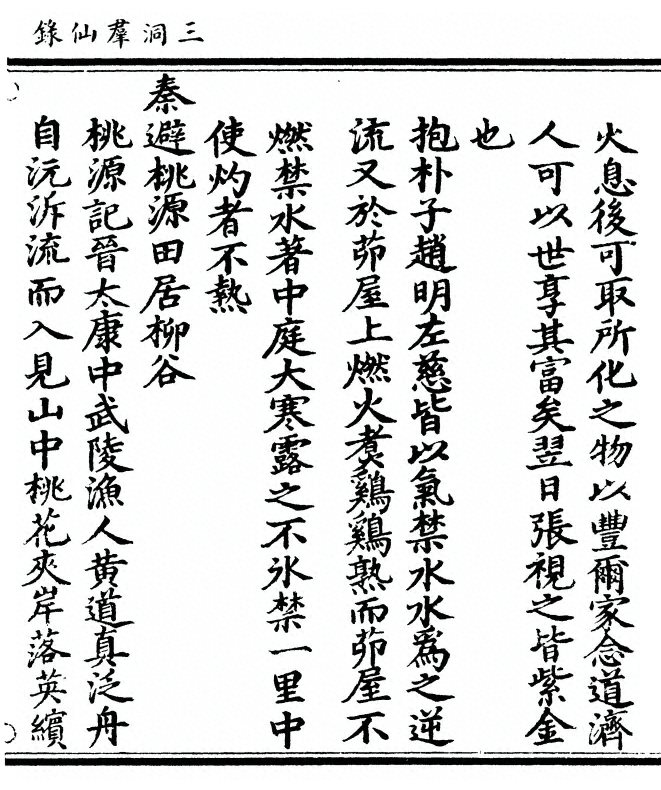 三洞羣仙錄
火息後可取所化之物以豐爾家念道濟
人可以世享其富矣翌日張視之皆紫金
也
抱朴子趙明左慈皆以氣禁水水爲之逆
流又於茆屋上燃火煑鷄鷄熟而茆屋不
燃禁水著中庭大寒露之不氷禁一里中
使灼者不熱
秦避桃源田居柳谷
桃源記晉太康中武陵漁人黄道真泛舟
自沅泝流而入見山中桃花夾岸落英繽